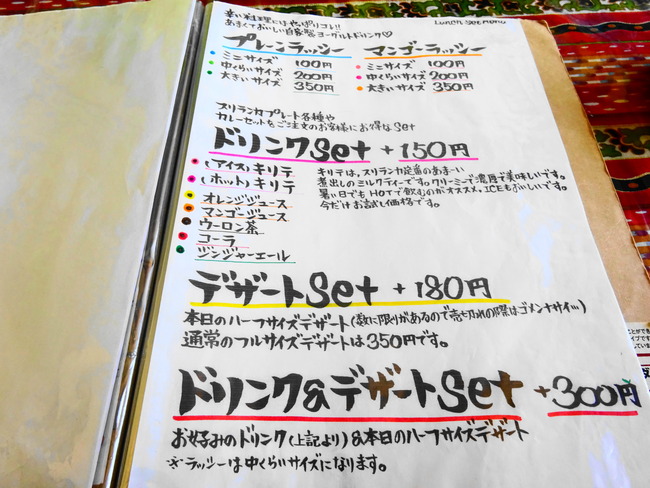 Lunch set menu
辛い料理にはやっぱりコレ!!
あまくておいしい自家製ヨーグルトドリンク♡
プレーンラッシー
ミニサイズ 100円
中くらいサイズ 200円
大きいサイズ 350円
マンゴーラッシー
ミニサイズ 100円
中くらいサイズ 200円
大きいサイズ 350円
スリランカプレート各種や
カレーセットをご注文のお客様にお得なset
ドリンクset +150円
(アイス)キリテ
(ホット)キリテ
オレンジジュース
マンゴージュース
ウーロン茶
コーラ
ジンジャーエール
キリテは、スリランカ定番のあまーい
煮出しのミルクティーです。クリーミーで濃厚で美味しいです。
暑い日でもHOTで飲むのがオススメ。ICEもおいしいです。
今だけお試し価格です。
デザートset +180円
本日のハーフサイズデザート(数に限りがあるので売り切れの際はゴメンナサイ…)
通常のフルサイズデザートは350円です。
ドリンク&デザートset +300円
お好みのドリンク(上記より)&本日のハーフサイズデザート
※ラッシーは中くらいサイズになります。